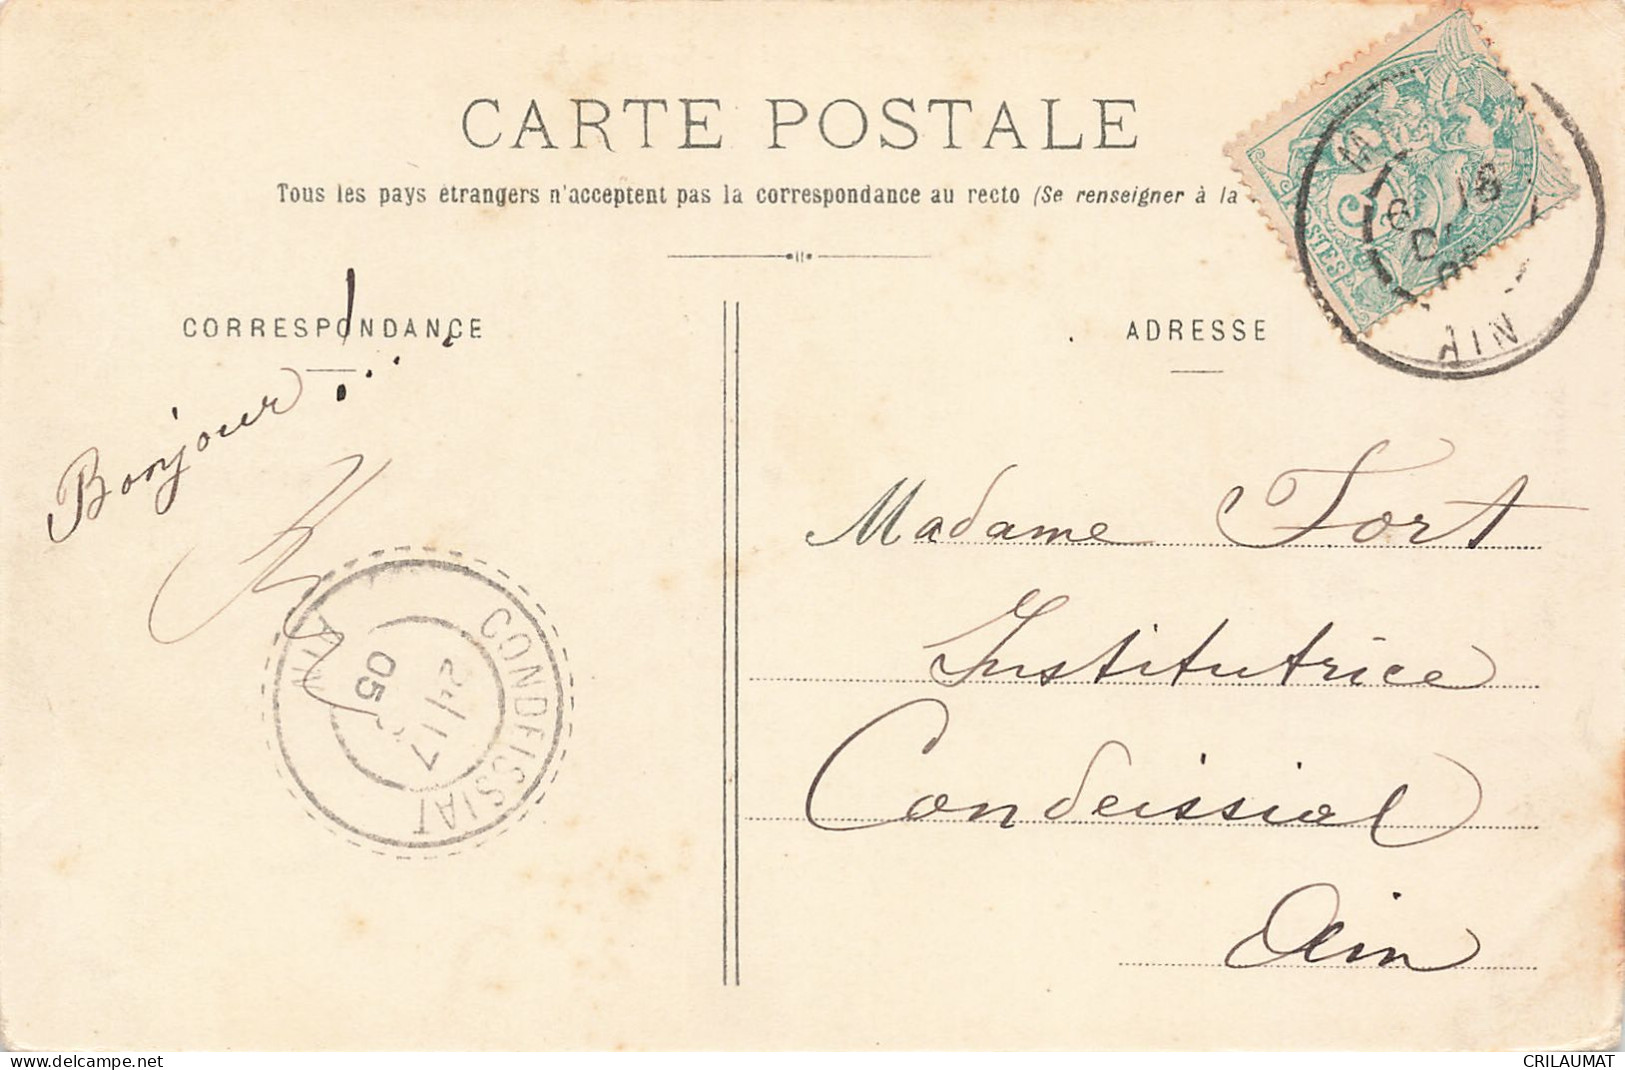 CARTE POSTALE
Tous les pays étrangers n'acceptent pas la correspondance au recto (Se renseigner à la
CORRESPONDANCE
ADRESSE
Bonjour!...
Madame Fort
Institutrice
Condeissial
Ain
CONDEISSIAT
AIN
05
POSTES
5
AIN
16
website: www.delcampe.net
CRILAUMAT